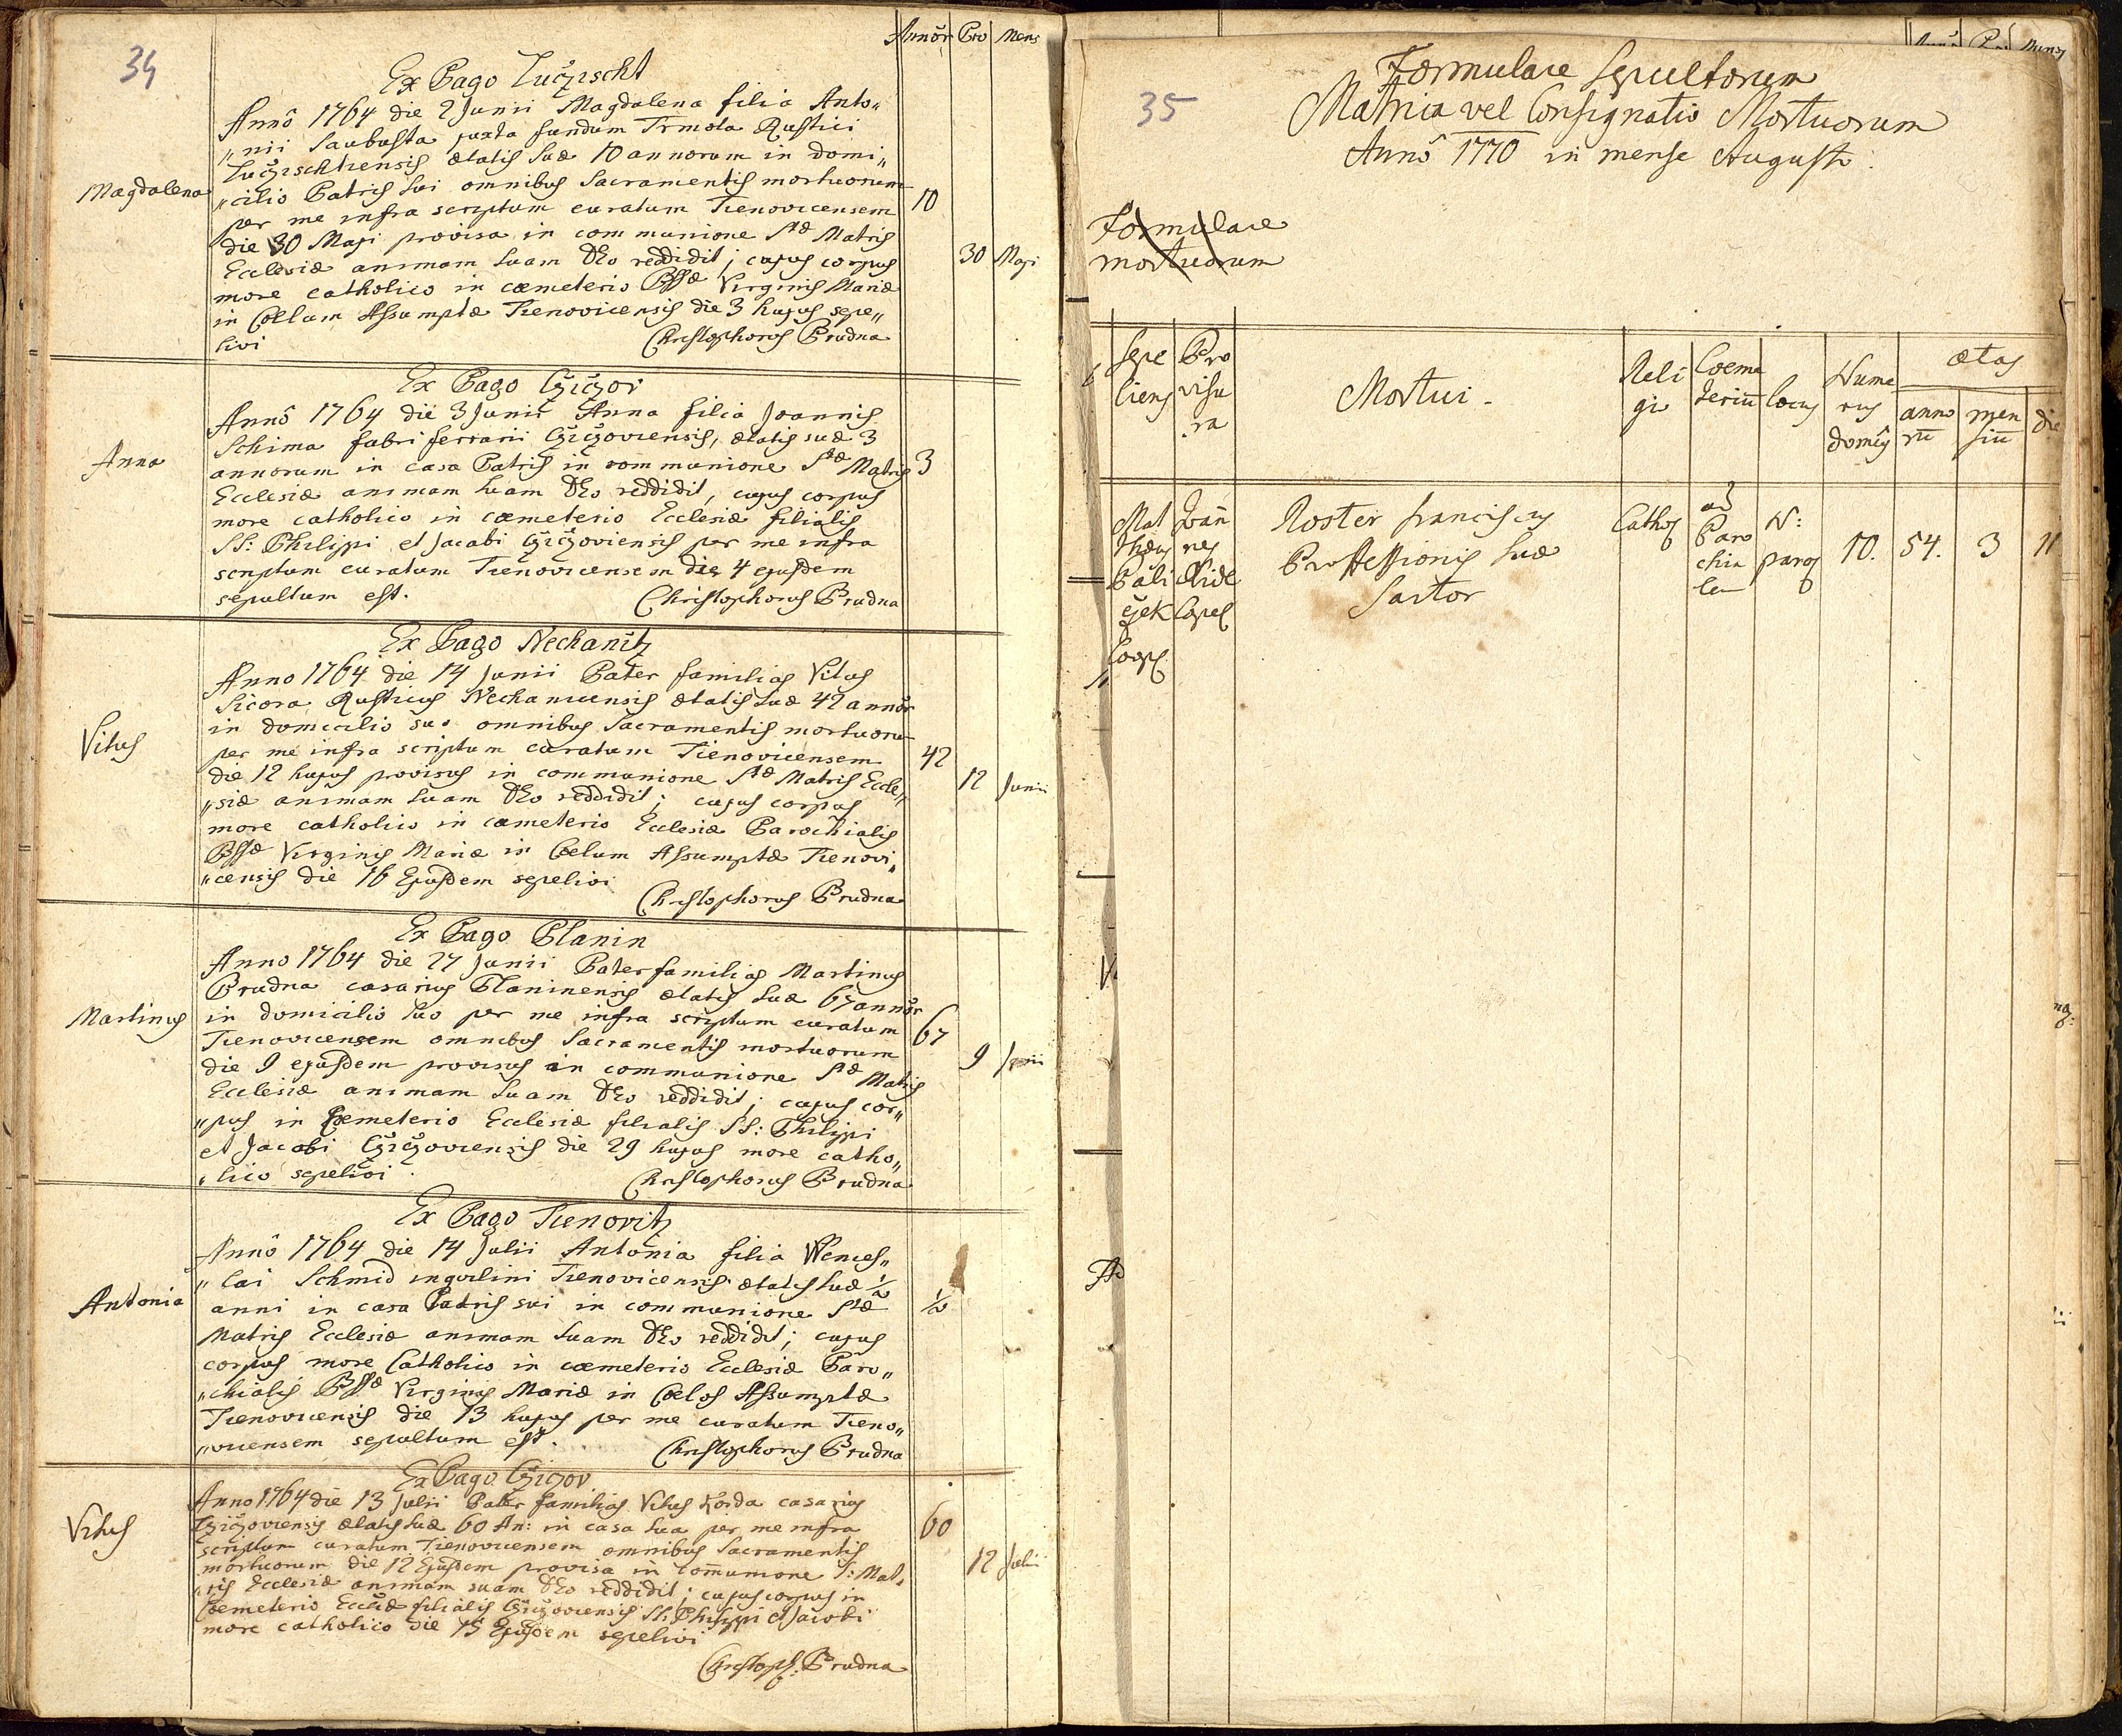 34
Annor̃ Pro Mens
Ex Pago Lučzischt
Annô 1764 die 2 Junii Magdalena filia Anto„
„nii Saubusta juxta fundum Trmota Rustici
Lučzischtiensis ætatis suæ 10 annorum in domi„
Magdalena
„cilio Patris sui omnibus Sacramentis mortuorum
10
per me infra scriptum curatum Tienovicensem
die 30 Maji provisa in communione Stæ Matris
30 Maji
Ecclesiæ animam suam DEo reddidit; cujus corpus
more catholico in cæmeterio Bssæ Virginis Mariæ
in Cœlum Assumptæ Tienovicensis die 3 hujus sepe„
livi Christophorus Prudna
Ex Pago Cžicžov
Annô 1764 die 3 Junii Anna filia Joannis
Schima fabri ferrarii Cžicžoviensis, ætatis suæ 3
Anna
annorum in casa Patris in communione Stæ Matris
3
Ecclesiæ animam suam DEo reddidit, cujus corpus
more catholico in cæmeterio Ecclesiæ filialis
SS: Philippi et Jacobi Cžicžoviensis per me infra
scriptum curatum Tienovicensem die 4 ejusdem
sepultum est. Christophorus Prudna
Ex Pago Nechanitz
Anno 1764 die 14 Junii Pater familias Vitus
Sicora Rusticus Nechanicensis ætatis suæ 42 annor̃
in domicilio suo omnibus Sacramentis mortuoru
Vitus
per me infra scriptum curatum Tienovicensem
42
die 12 hujus provisus in communione Stæ Matris Eccle„
12 Junii
„siæ animam suam DEo reddidit; cujus corpus
more catholico in cæmeterio Ecclesiæ Parochialis
Bssæ Virginis Mariæ in Cœlum Assumptæ Tienovi„
„censis die 16 Ejusdem sepelivi
Christophorus Prudna
Ex Pago Planin
Anno 1764 die 27 Junii Pater familias Martinus
Prudna casarius Planinensis ætatis suæ 67 annor̃
Martinus
in domicilio suo per me infra scriptum curatum
67
Tienovicensem omnibus Sacramentis mortuorum
die 9 ejusdem provisus in communione Stæ Matris
9 Junii
Ecclesiæ animam suam DEo reddidit; cujus cor„
„pus in Cœmeterio Ecclesiæ filialis SS: Philippi
et Jacobi Cžicžoviensis die 29 hujus more catho„
„lico sepelivi Christophorus Prudna
Ex Pago Tienovitz
Annô 1764 die 14 Julii Antonia filia Wences„
„lai Schmid inquilini Tienovicensis ætatis suæ ½
Antonia
anni in casa Patris sui in communione Stæ
½
Matris Ecclesiæ animam suam DEo reddidit; cujus
corpus more Catholico in cæmeterio Ecclesiæ Paro„
„chialis Bssæ Virginis Mariæ in Cœlos Assumptæ
Tienovicensis die 13 hujus per me curatum Tieno„
„vicensem sepultum est. Christophorus Prudna
Ex Pago Cžicžov
Anno 1764 die 13 Julii Pater familias Vitus Korda casarius
Vitus
Cžicžoviensis ætatis suæ 60 An: in casa sua per me infra
60
scriptum curatum Tienovicensem omnibus Sacramentis
mortuorum die 12 Ejusdem provisa in com̃unione S: Mat„
12 Julii
„ris Ecclesiæ animam suam DEo reddidit; cujus corpus in
Cœmeterio Eccliæ filialis Cžicžoviensis SS: Philippi et Jacobi
more catholico die 15 Ejusdem sepelivi
Christoph: Prudna
35
Formulare sepultorum
Matrica vel Consignatio Mortuorum
Annô 1770 in mense Augusto.
Formulare
mortuorum
Sepe
liens
Pro
visu
ra
Mortui
Reli
gio
Coeme
teriũ
locus
Nume
rus
domûs
ætas
anno
rũ
men
siũ
die
Mat
thæus
Pali
cžek
Coop.
Joan̄
nes
Nidl
Capel
Roster franciscus
Professionis suæ
Sartor
Cathol
ad
Paro
chia
lem
N:
paroc
10.
54.
3
11